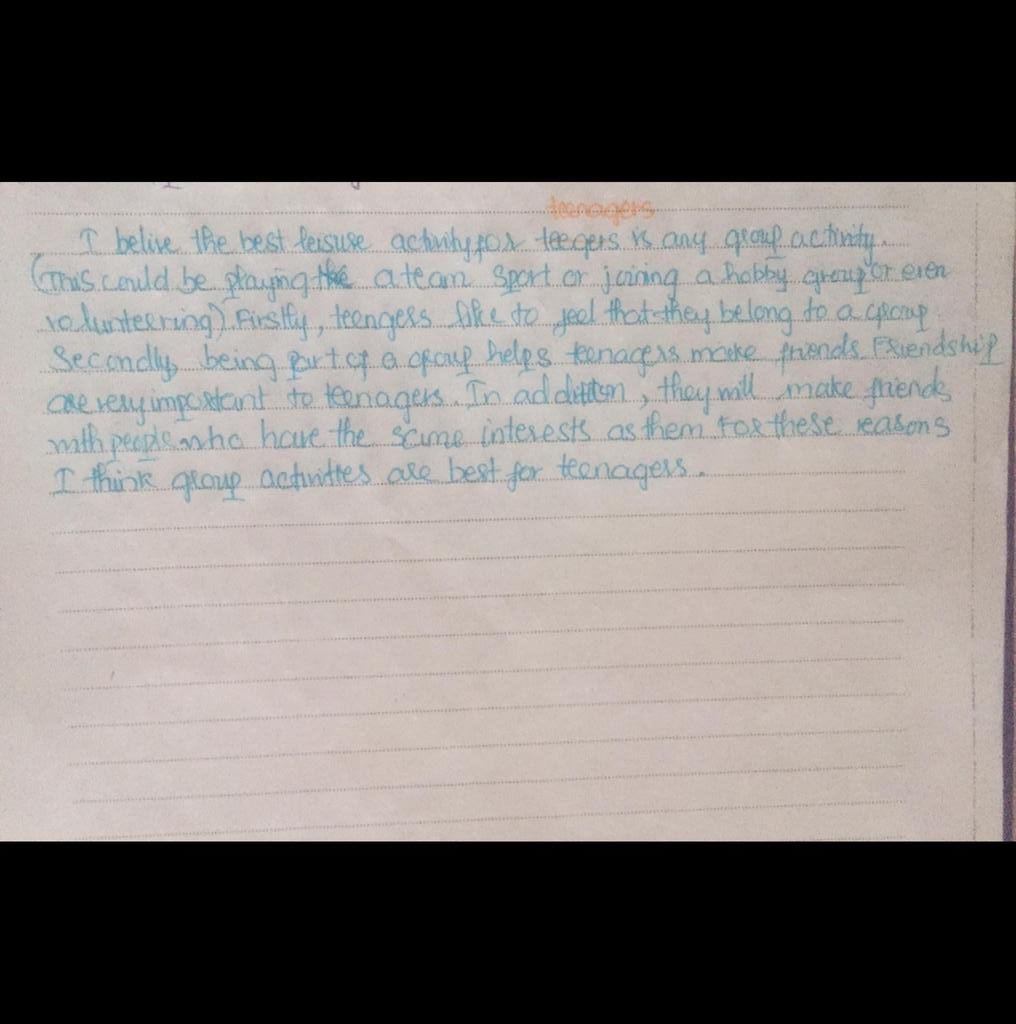 teenagers
I belive the best leisuse activity for teegers is any group activity.
(This could be playing the a team sport or joining a hobby group or even
volunteering). Firstly, teengers like to feel that they belong to a group.
Secondly, being part of a group helps teenagers make friends. Friendship
are very important to teenagers. In addition, they will make friends
with people who have the same interests as them For these reasons
I think group activities are best for teenagers.